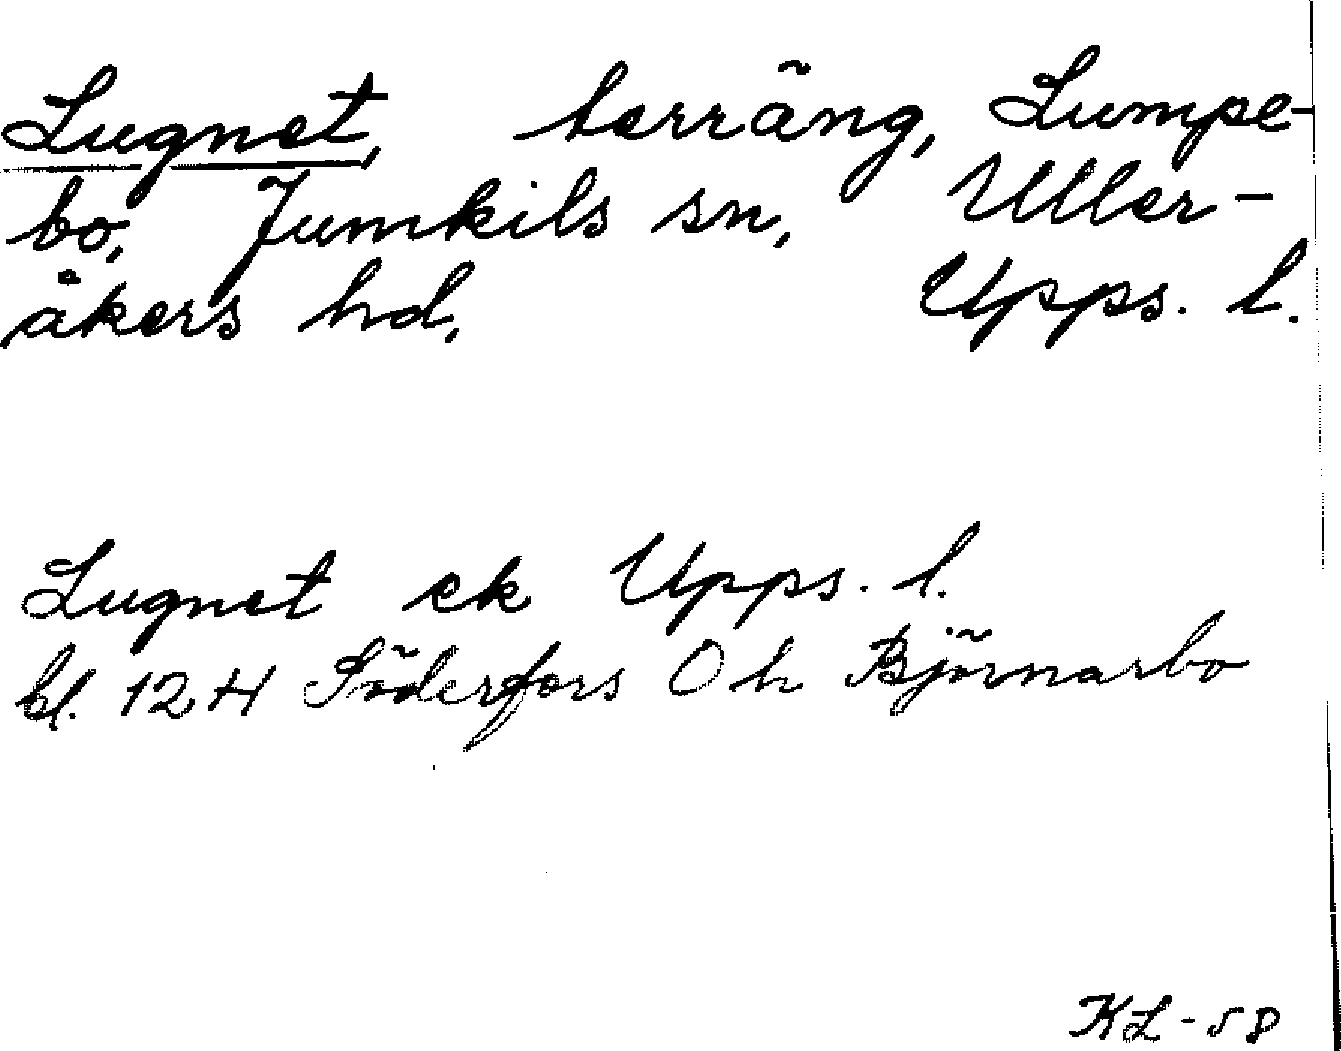 Lugnet, terräng, Lumpe-
bo, Jumkils sn, Uller-
åkers hd, Upps. l.
Lugnet ek Upps. l.
bl. 12 H Söderfors O h Björnarbo
KL-58